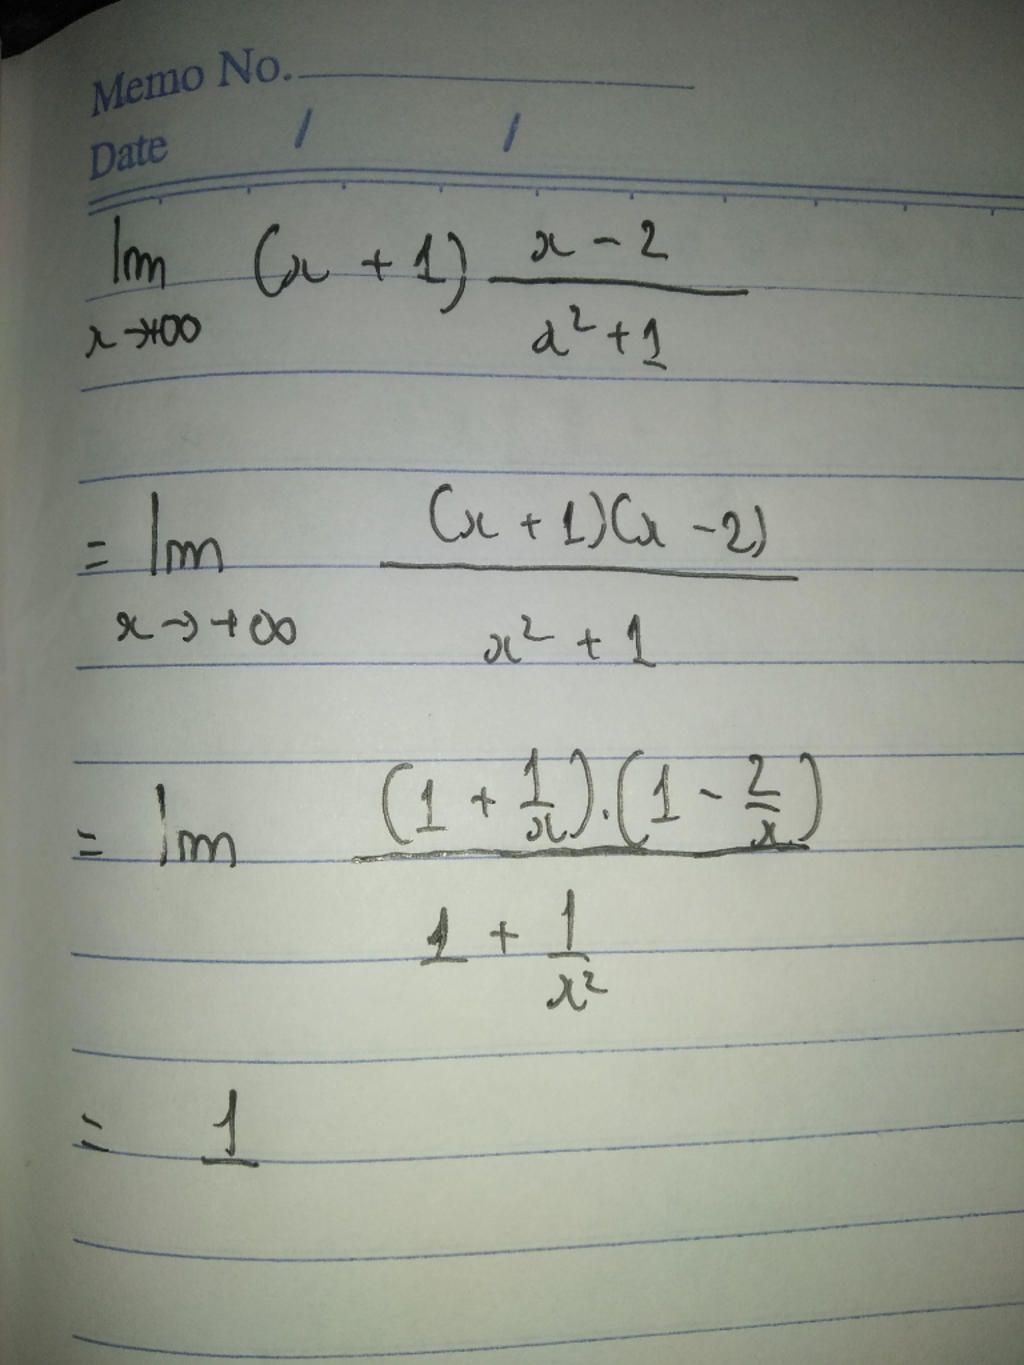 Memo No.
Date / /
lim (x + 1) x - 2 / x² + 1
x→+∞
= lim (x + 1)(x - 2) / x² + 1
x → +∞
= lim (1 + 1/x).(1 - 2/x) / 1 + 1/x²
= 1